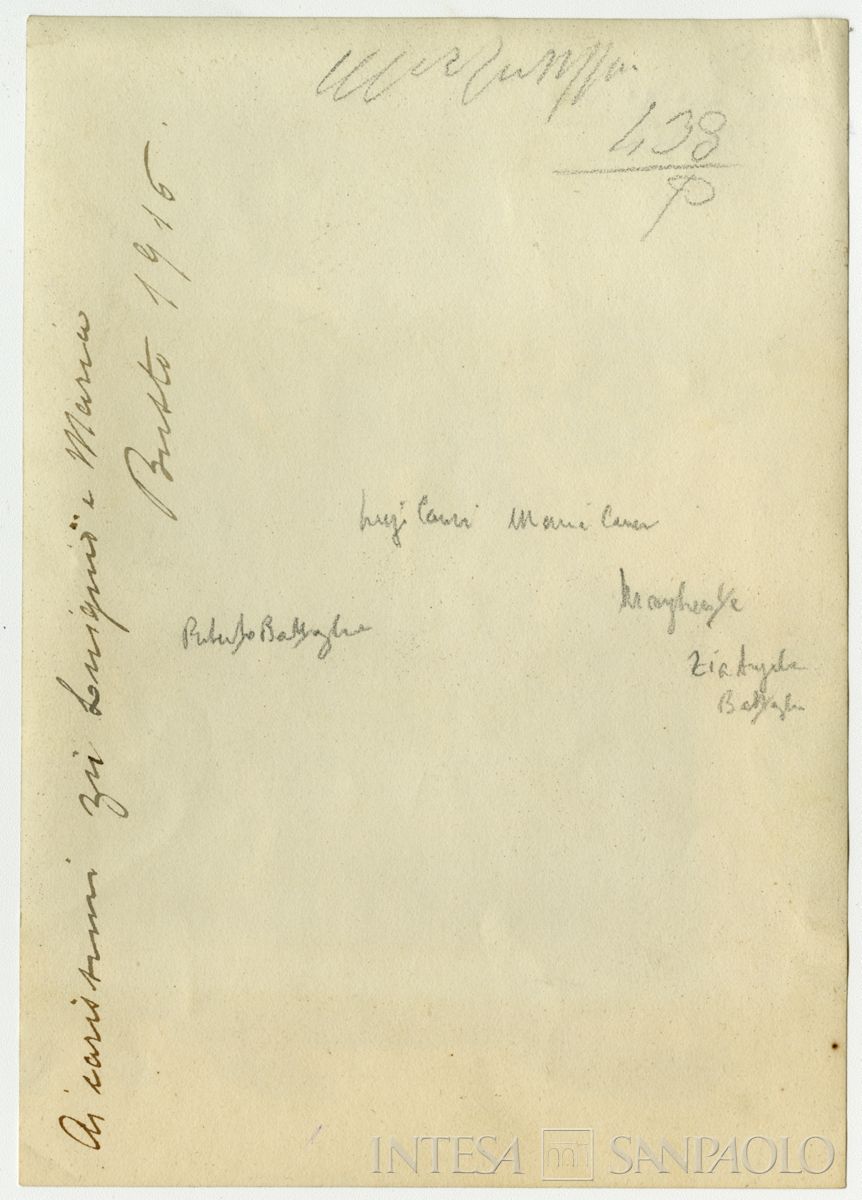 438
Ai carissimi zii Luigino e Maria
Busto 1915
Luigi Canvi Maria Canvi
Margherite
Roberto Battaglia
Zia Angela
Battaglia
INTESA SANPAOLO